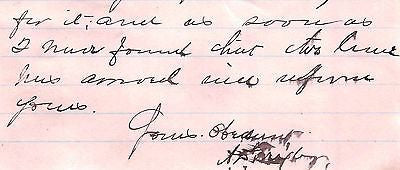 for it, and as soon as
I have found that the line
has arrived will inform
you.
Yours Obedient